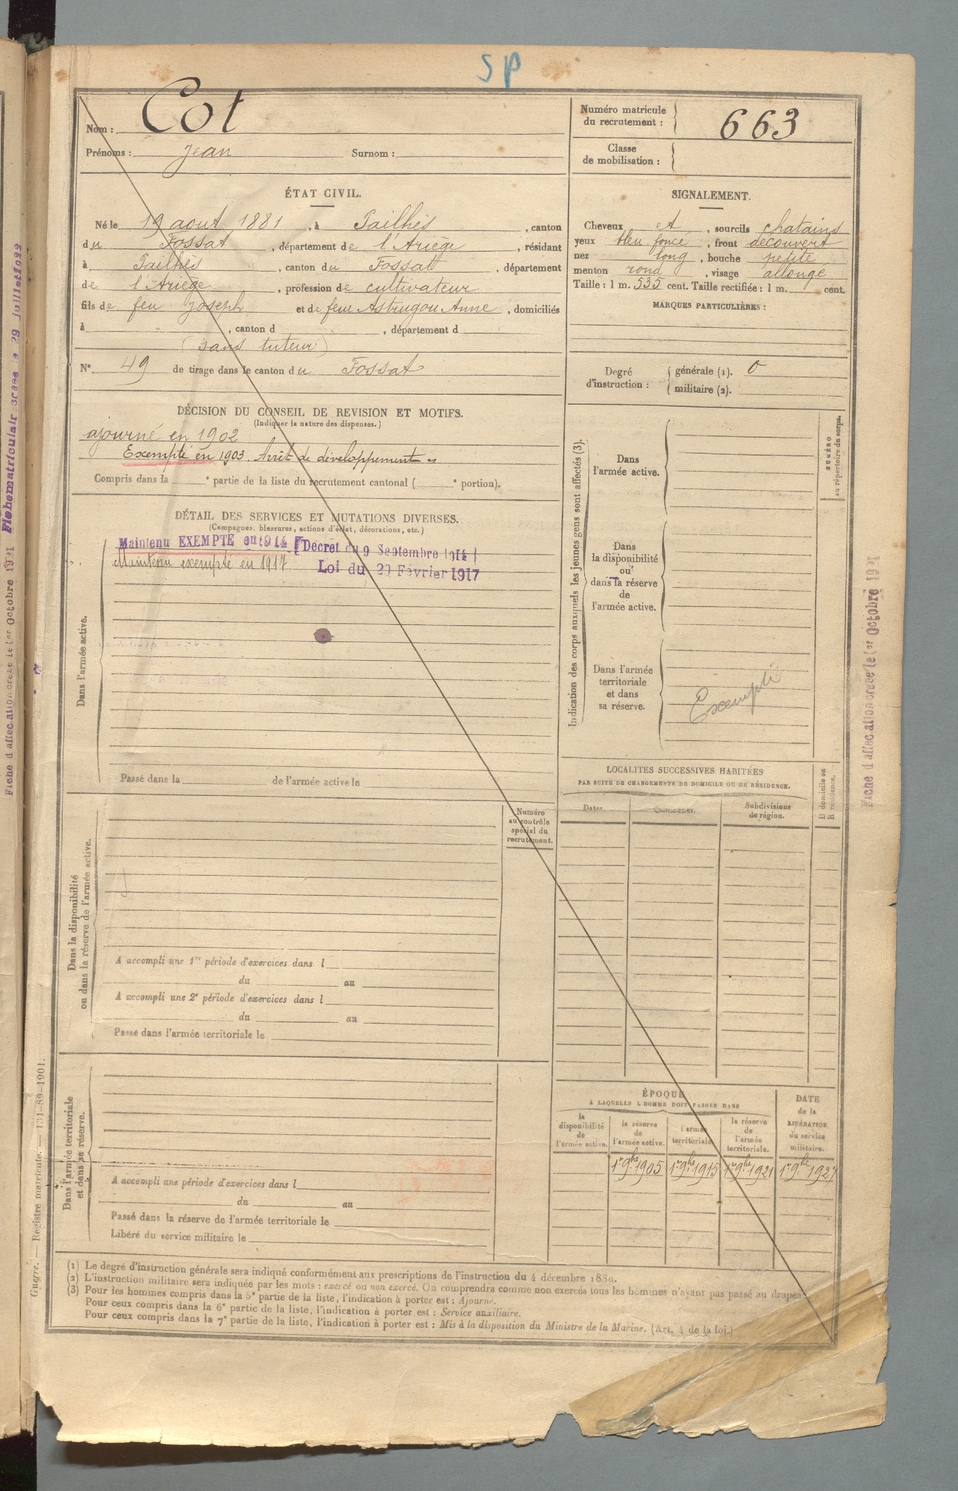 SP
Nom : Cot
Prénoms : Jean Surnom :
Numéro matricule du recrutement : 663
Classe de mobilisation :
ÉTAT CIVIL.
Né le 19 aout 1881, à Pailhès, canton
du Fossat, département de l'Ariège, résidant
à Pailhès, canton du Fossat, département
de l'Ariège, profession de cultivateur
fils de feu Joseph et de feue Astrugou Anne, domiciliés
à , canton d , département d
(sans tuteur)
N° 49 de tirage dans le canton du Fossat
SIGNALEMENT.
Cheveux et, sourcils chatains
yeux bleu foncé, front découvert
nez long, bouche petite
menton rond, visage allongé
Taille : 1 m. 535 cent. Taille rectifiée : 1 m. cent.
MARQUES PARTICULIÈRES :
Degré d'instruction : générale (1). 0
militaire (2).
DÉCISION DU CONSEIL DE REVISION ET MOTIFS.
(Indiquer la nature des dispenses.)
ajourné en 1902
Exempté en 1903. Arrêt de développement
Compris dans la e partie de la liste du recrutement cantonal ( e portion).
DÉTAIL DES SERVICES ET MUTATIONS DIVERSES.
(Campagnes, blessures, actions d'éclat, décorations, etc.)
Maintenu EXEMPTE en 1914 Décret du 9 Septembre 1914
Maintenu exempté en 1917 Loi du 20 Février 1917
Dans l'armée active.
Passé dans la de l'armée active le
Indication des corps auxquels les jeunes gens sont affectés (3).
NUMÉRO au répertoire du corps.
Dans l'armée active.
Dans la disponibilité ou dans la réserve de l'armée active.
Dans l'armée territoriale et dans sa réserve.
Exempté
LOCALITÉS SUCCESSIVES HABITÉES
PAR SUITE DE CHANGEMENTS DE DOMICILE OU DE RÉSIDENCE.
Dates. Communes. Subdivisions de région. D. domicile ou R. résidence.
Numéro au contrôle spécial du recrutement.
Dans la disponibilité ou dans la réserve de l'armée active.
A accompli une 1re période d'exercices dans l
du au
A accompli une 2e période d'exercices dans l
du au
Passé dans l'armée territoriale le
Dans l'armée territoriale et dans sa réserve.
A accompli une période d'exercices dans l
du au
Passé dans la réserve de l'armée territoriale le
Libéré du service militaire le
ÉPOQUE
A LAQUELLE L'HOMME DOIT PASSER DANS
la disponibilité de l'armée active.
la réserve de l'armée active.
l'armée territoriale.
la réserve de l'armée territoriale.
DATE de la LIBÉRATION du service militaire.
1er 9bre 1905 1er 9bre 1915 1er 9bre 1921 1er 9bre 1927
(1) Le degré d'instruction générale sera indiqué conformément aux prescriptions de l'instruction du 4 décembre 1889.
(2) L'instruction militaire sera indiquée par les mots : exercé ou non exercé. On comprendra comme non exercés tous les hommes n'ayant pas passé au drapeau.
(3) Pour les hommes compris dans la 5e partie de la liste, l'indication à porter est : Ajourné.
Pour ceux compris dans la 6e partie de la liste, l'indication à porter est : Service auxiliaire.
Pour ceux compris dans la 7e partie de la liste, l'indication à porter est : Mis à la disposition du Ministre de la Marine. (Art. 4 de la loi.)
Guerre. — Registre matricule. — 131-89-1901.
Fiche d'affectation créée le 1er Octobre 1931
Fiche matriculaire créée le 29 juillet 1933
Fiche d'affectation créée le 1er Octobre 1931